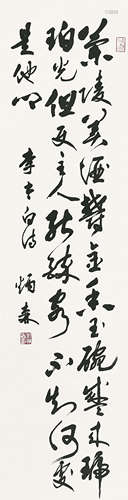 蘭陵美酒鬱金香玉碗盛来琥
珀光但使主人能醉客不知何處
是他鄉 李太白詩 炳森